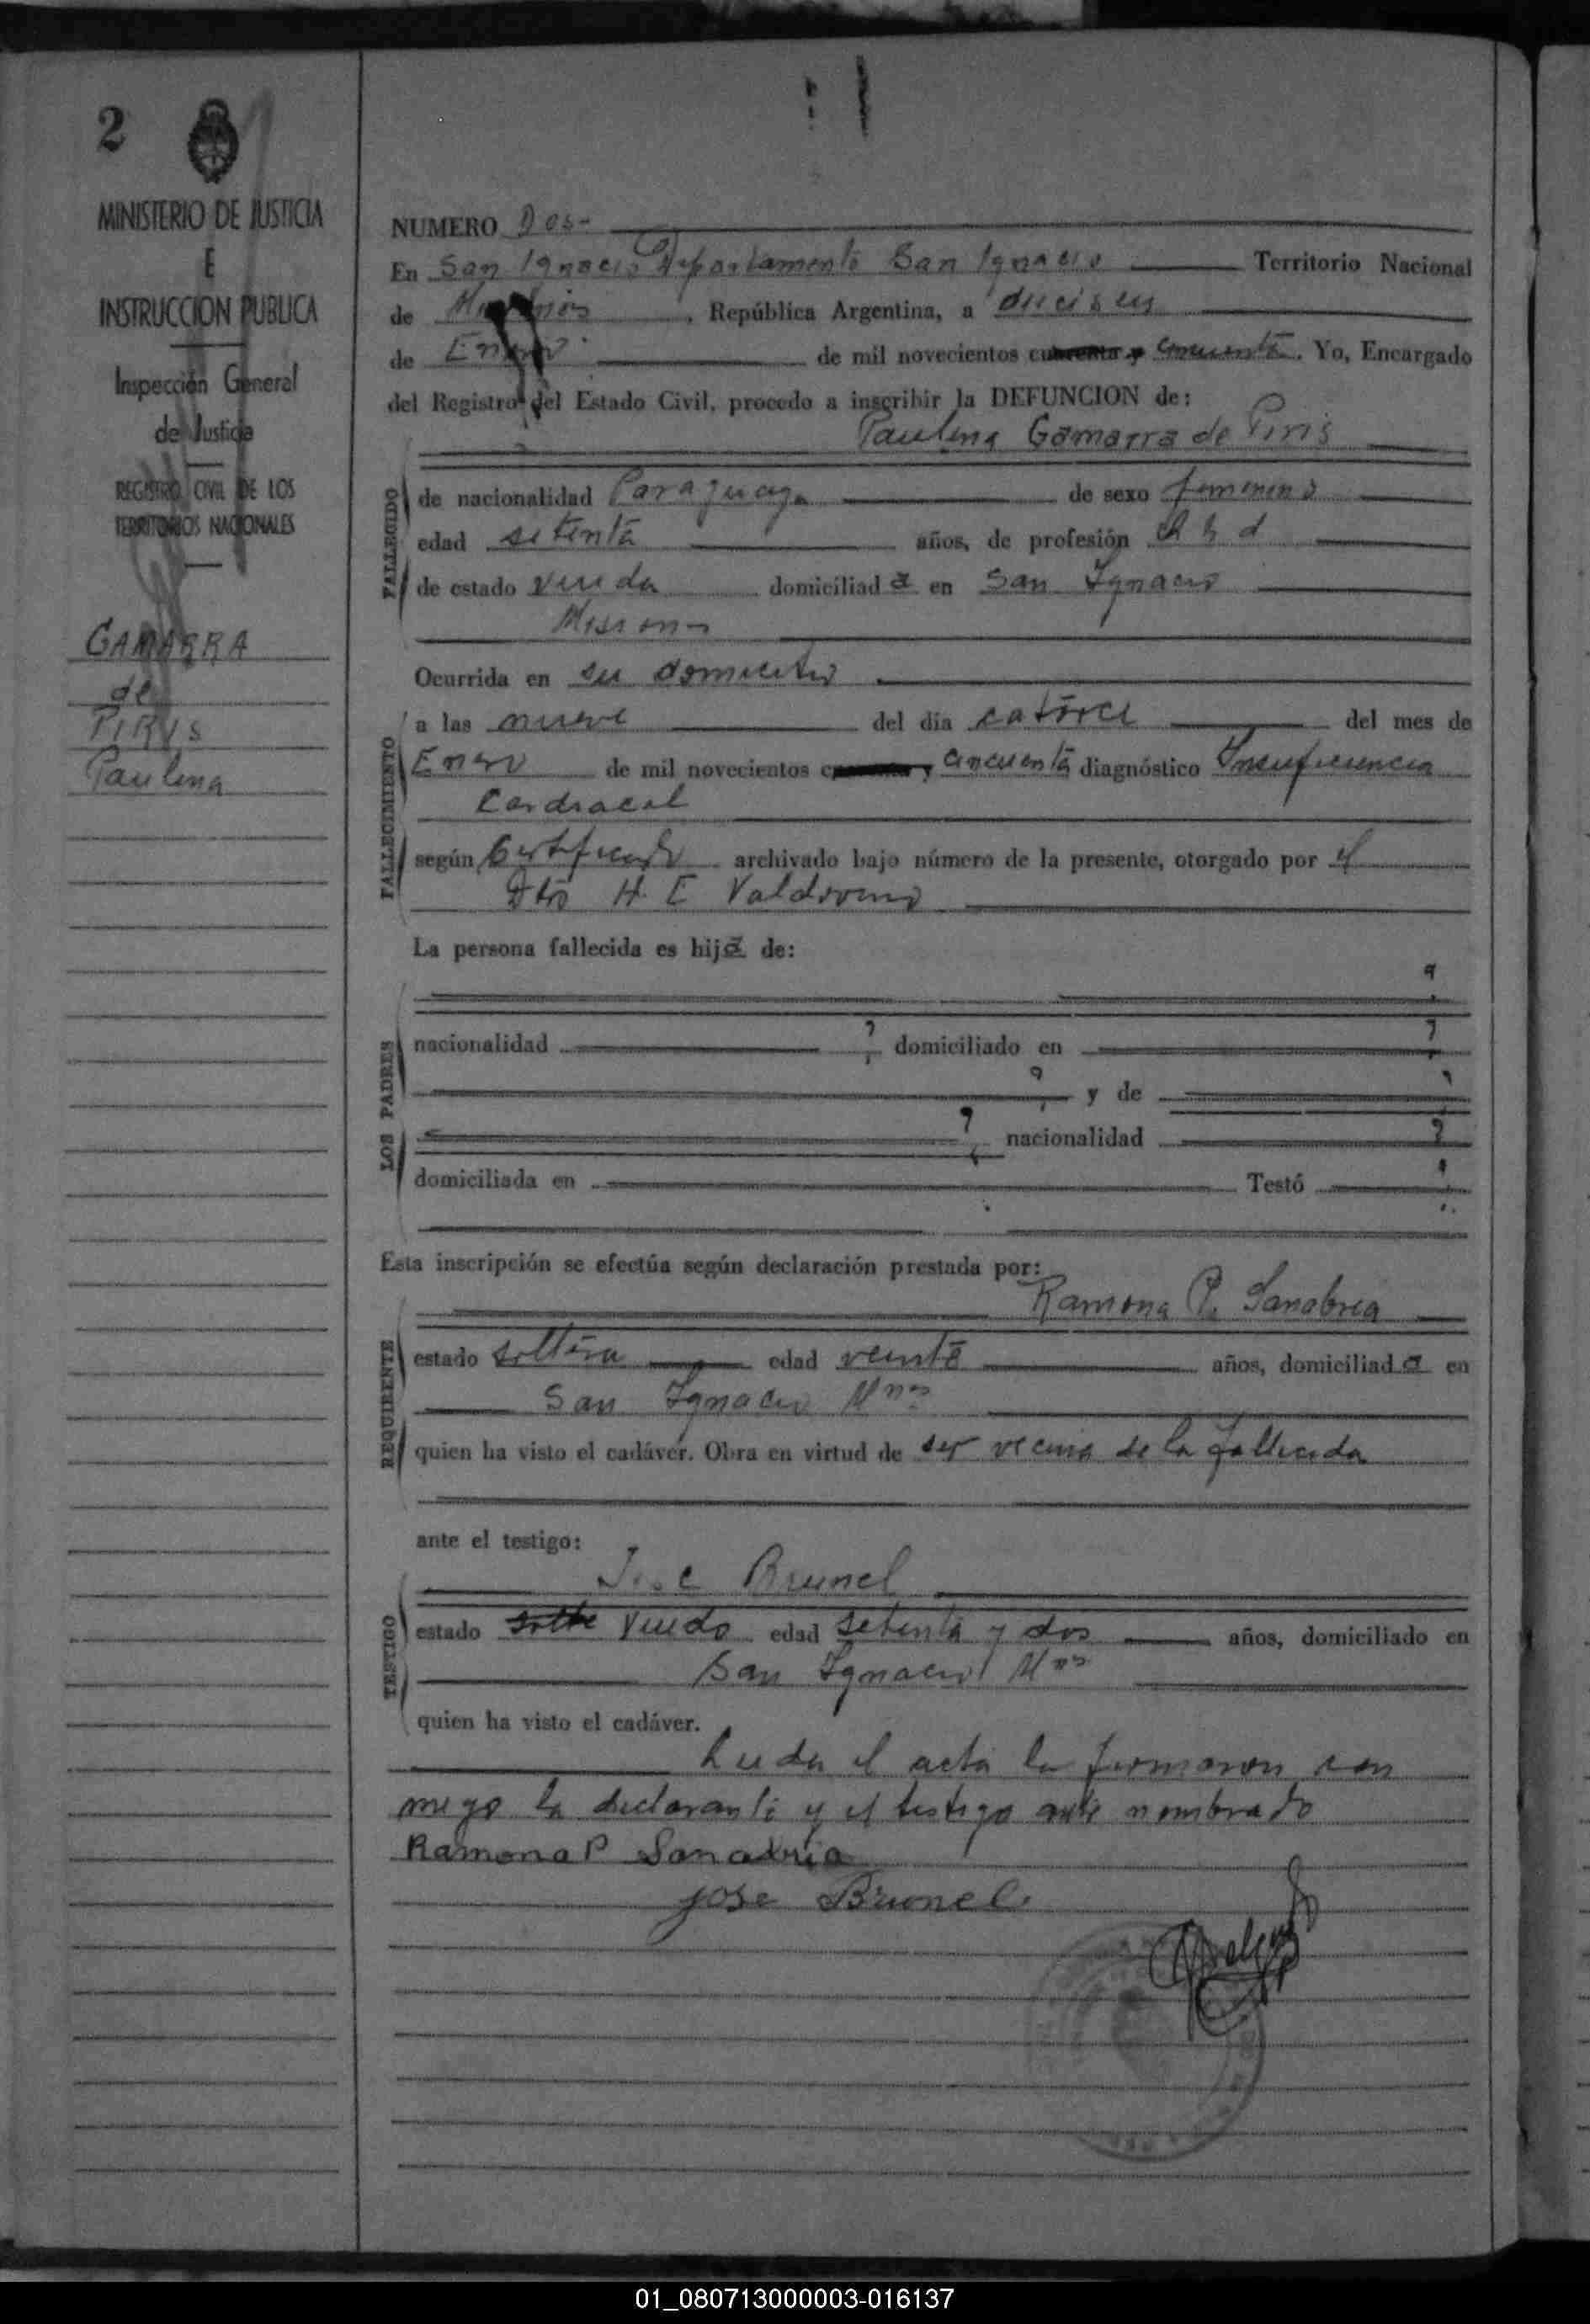 2
MINISTERIO DE JUSTICIA
E
INSTRUCCION PUBLICA
Inspección General
de Justicia
REGISTRO CIVIL DE LOS
TERRITORIOS NACIONALES
GAMARRA
de
PIRYS
Paulina
NUMERO Dos-
En San Ignacio Departamento San Ignacio Territorio Nacional
de Misiones, República Argentina, a dieciseis
de Enero de mil novecientos cincuenta. Yo, Encargado
del Registro del Estado Civil, procedo a inscribir la DEFUNCION de:
Paulina Gamarra de Piris
FALLECIDO
de nacionalidad Paraguaya de sexo femenino
edad setenta años, de profesión
de estado viuda domiciliada en San Ignacio
Misiones
Ocurrida en su domicilio
FALLECIMIENTO
a las nueve del día catorce del mes de
Enero de mil novecientos y cincuenta diagnóstico Insuficiencia
Cardiacal
según Certificado archivado bajo número de la presente, otorgado por el
H. E Valdovino
La persona fallecida es hija de:
LOS PADRES
?
nacionalidad ? domiciliado en ?
? y de ?
? nacionalidad ?
domiciliada en Testó ?
Esta inscripción se efectúa según declaración prestada por:
Ramona P. Sanabria
REQUIRENTE
estado soltera edad veinte años, domiciliada en
San Ignacio Mnes
quien ha visto el cadáver. Obra en virtud de ser vecina de la fallecida
ante el testigo:
José Brunel
TESTIGO
estado solte Viudo edad setenta y dos años, domiciliado en
San Ignacio Mnes
quien ha visto el cadáver.
Leida el acta la firmaron con
migo la declarante y el testigo ante nombrado
Ramona P Sanabria
Jose Brunel
01_080713000003-016137